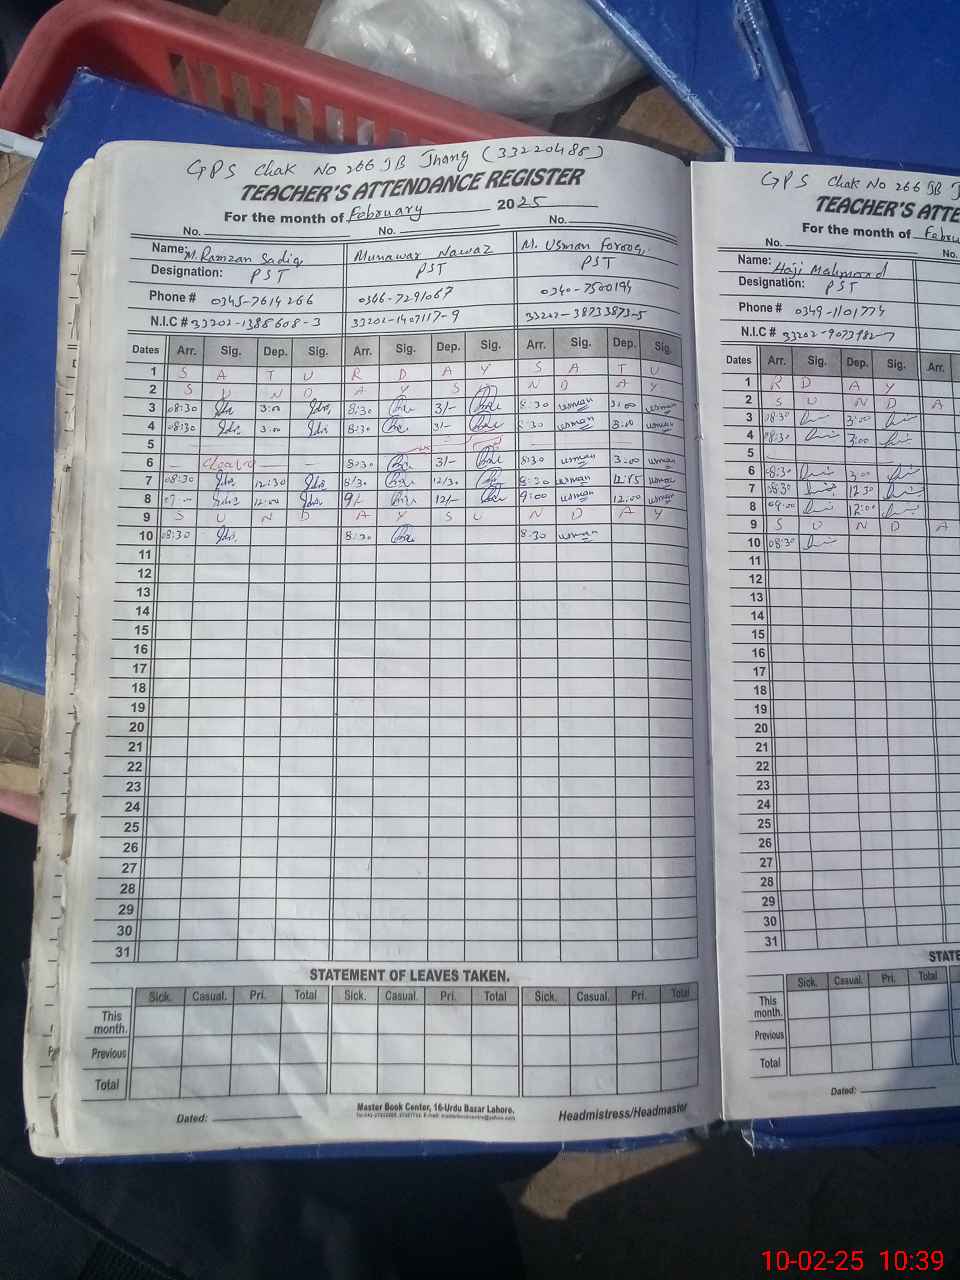 GPS Chak No 266 JB Jhang (33220488)
TEACHER'S ATTENDANCE REGISTER
For the month of February 2025
No. No. No.
Name: M. Ramzan Sadiq Munawar Nawaz M. Usman Farooq
Designation: PST PST PST
Phone # 0345-7614266 0346-7291067 0340-7500194
N.I.C # 33202-1385608-3 33202-1407117-9 33202-38733873-5
Dates Arr. Sig. Dep. Sig. Arr. Sig. Dep. Sig. Arr. Sig. Dep. Sig.
1 S A T U R D A Y S A T U
2 S U N D A Y S N D A Y
3 08:30 3:00 8:30 3/- 8:30 usman 3:00 usman
4 08:30 3:00 8:30 3/- 8:30 usman 3:00 usman
5
6 8:30 3/- 8:30 usman 3:00 usman
7 08:30 12:30 8/30 12/30 8:30 usman 12:15 usman
8 12:00 9/- 12/- 9:00 usman 12:00 usman
9 S U N D A Y S U N D A Y
10 08:30 8:30 8:30 usman
11
12
13
14
15
16
17
18
19
20
21
22
23
24
25
26
27
28
29
30
31
STATEMENT OF LEAVES TAKEN.
Sick. Casual. Pri. Total Sick. Casual. Pri. Total Sick. Casual. Pri. Total
This month.
Previous
Total
Dated:
Master Book Center, 16-Urdu Bazar Lahore.
Headmistress/Headmaster
GPS Chak No 266 JB J
TEACHER'S ATTE
For the month of Febru
No. No.
Name: Haji Mahmood
Designation: PST
Phone # 0349-1101774
N.I.C # 33202-9073982-7
Dates Arr. Sig. Dep. Sig. Arr.
1 R D A Y
2 S U N D A
3 08:30 3:00
4 08:30 3:00
5
6 08:30 3:00
7 08:30 12:30
8 09:00 12:00
9 S U N D A
10 08:30
11
12
13
14
15
16
17
18
19
20
21
22
23
24
25
26
27
28
29
30
31
STATE
Sick. Casual. Pri. Total
This month.
Previous
Total
Dated:
10-02-25 10:39